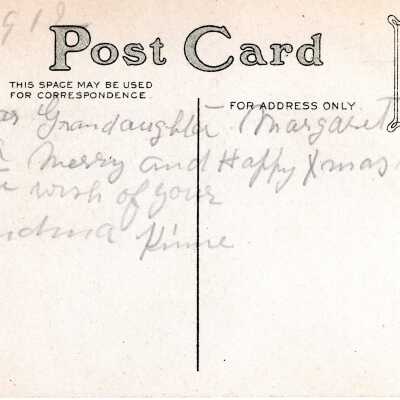 Post Card
THIS SPACE MAY BE USED
FOR CORRESPONDENCE.
FOR ADDRESS ONLY.
Grandaughter Margaret
Merry and Happy Xmas
wish of your